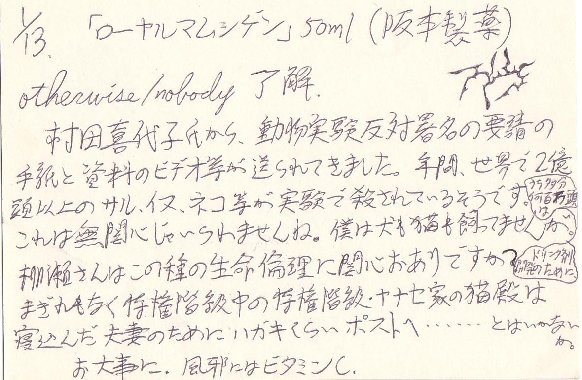 1/13. 「ローヤルマムシゲン」50ml (阪本製薬)
otherwise/nobody 了解.
村田喜代子氏から、動物実験反対署名の要請の
手紙と資料のビデオ等が送られてきました。年間、世界で2億
頭以上のサル、イヌ、ネコ等が実験で殺されているそうです。
これは無関心じゃいられませんね。僕は犬も猫も飼ってませんが。
柳瀬さんはこの種の生命倫理に関心おありですか?
ドリンク剤開発のために
まぎれもなく特権階級中の特権階級・ヤナセ家の猫殿は
寝込んだ夫妻のためにハガキくらいポストへ……とはいかないか。
お大事に. 風邪にはビタミンC.